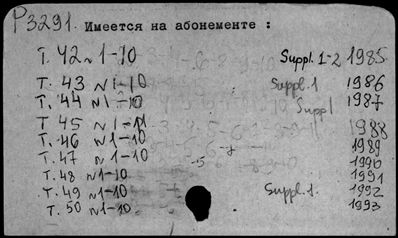 Р3291. Имеется на абонементе :
Т. 42 N 1-10 Suppl. 1-2 1985
Т. 43 N 1-10 Suppl. 1 1986
Т. 44 N 1-10 Suppl 1987
Т. 45 N 1-11 1988
Т. 46 N 1-10 1989
Т. 47 N 1-10 1990
Т. 48 N 1-10 1991
Т. 49 N 1-10 Suppl. 1. 1992
Т. 50 N 1-10 1993